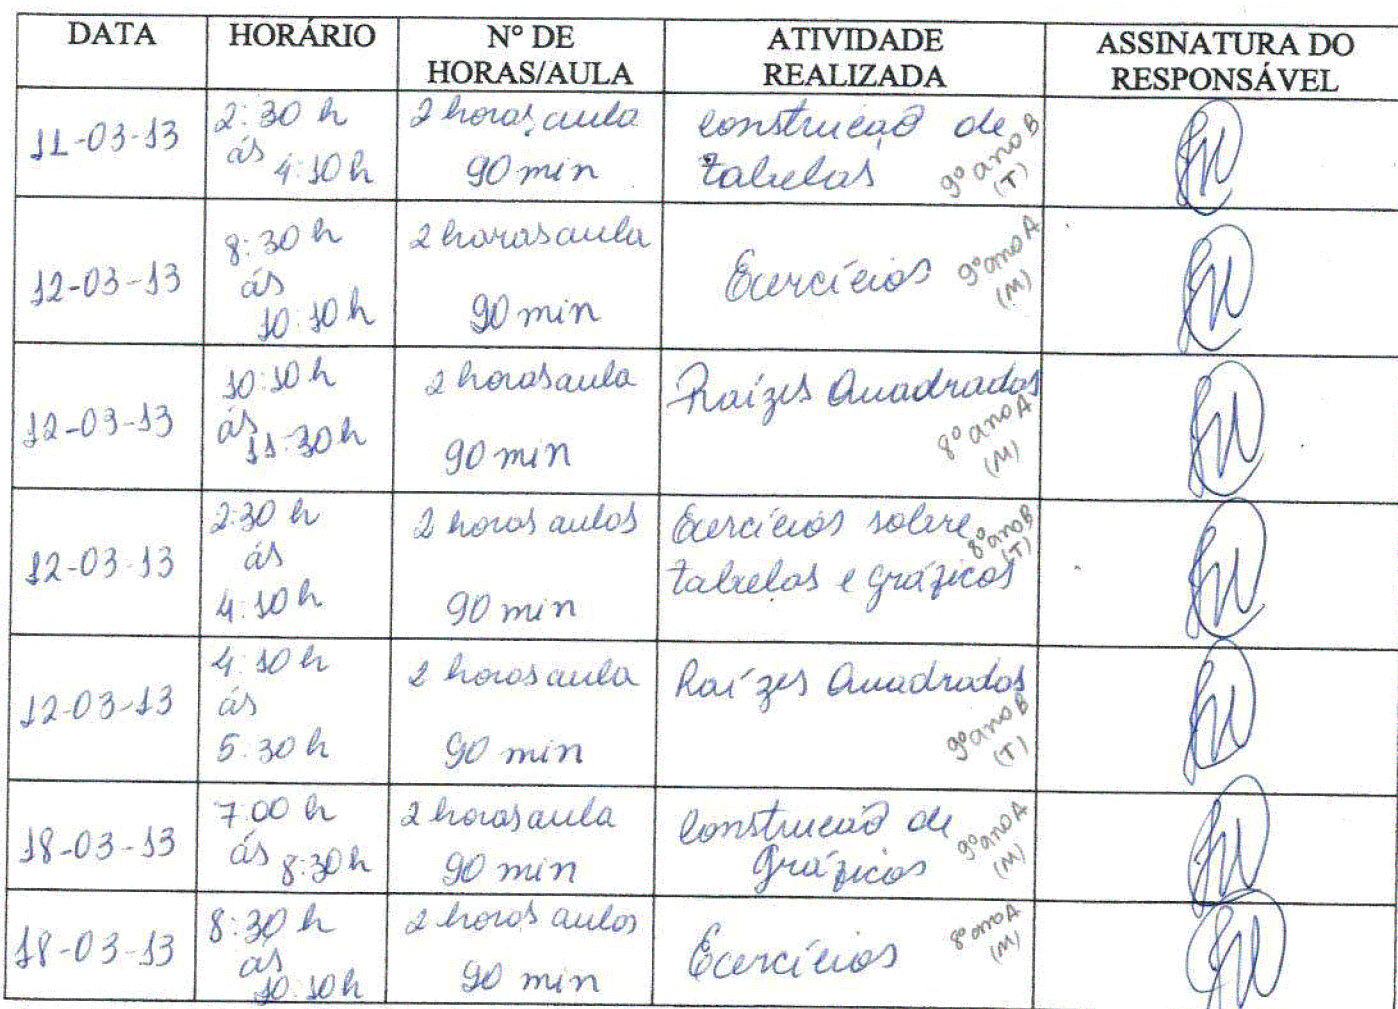 DATA HORÁRIO Nº DE HORAS/AULA ATIVIDADE REALIZADA ASSINATURA DO RESPONSÁVEL
11-03-13
2:30 h
ás
4:10 h
2 horas aula
90 min
construcaõ de
tabelas
9º ano B
(T)
12-03-13
8:30 h
ás
10:10 h
2 horas aula
90 min
Exercícios
9º ano A
(M)
12-03-13
10:10 h
ás
11:30 h
2 horas aula
90 min
Raízes Quadradas
8º ano A
(M)
12-03-13
2:30 h
ás
4:10 h
2 horas aulas
90 min
Exercícios sobre
tabelas e gráficos
8º ano B
(T)
12-03-13
4:10 h
ás
5:30 h
2 horas aula
90 min
Raízes Quadradas
9º ano B
(T)
18-03-13
7:00 h
ás
8:30 h
2 horas aula
90 min
construcaõ de
gráficos
9º ano A
(M)
18-03-13
8:30 h
ás
10:10 h
2 horas aulas
90 min
Exercícios
8º ano A
(M)